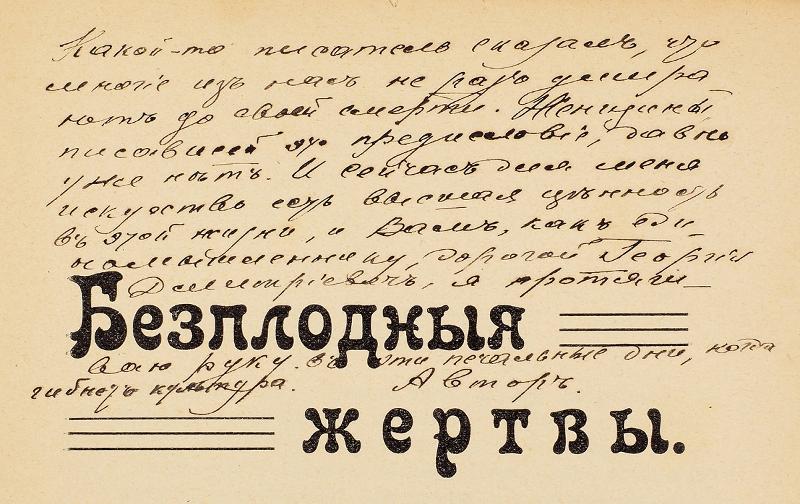 Какой-то писатель сказалъ, что
многіе изъ насъ не разъ умира
ютъ до своей смерти. Женщины,
писавшей это предисловіе, давно
уже нѣтъ. И сейчасъ для меня
искусство есть высшая цѣнность
въ этой жизни, и Вамъ, какъ еди
номышленнику, дорогой Георгій
Дмитріевичъ, я протяги-
Безплодныя
ваю руку. Въ эти печальные дни, когда
гибнетъ культура. Авторъ.
жертвы.